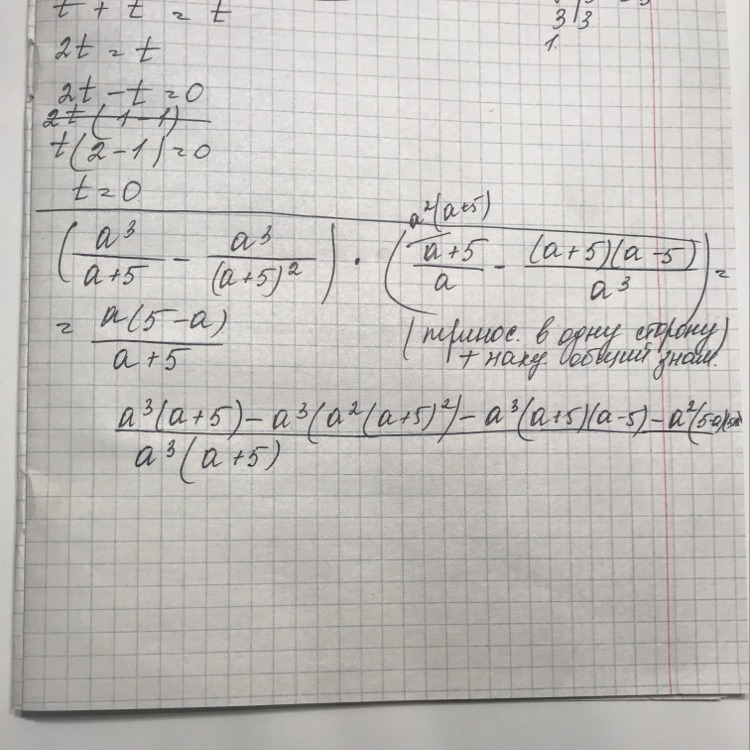 t + t = t
3 3
1.
2t = t
2t - t = 0
2t(1-1)
t(2-1)=0
t=0
a²(a+5)
(a³/(a+5) - a³/(a+5)²) · ((a+5)/a - (a+5)(a-5)/a³) =
= a(5-a)/(a+5)
(принос. в одну сторону)
+ нахч общий знам.
a³(a+5)-a³(a²(a+5)²)-a³(a+5)(a-5)-a²(5-a)
a³(a+5)